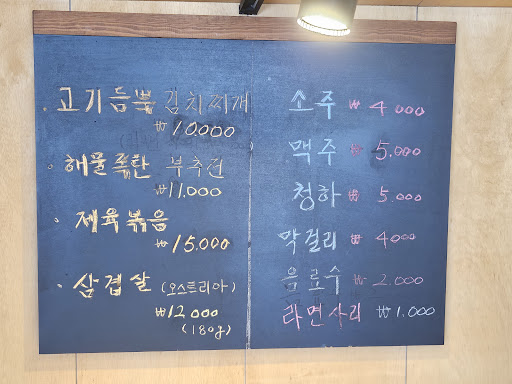 · 고기듬뿍 김치찌개
₩10.000
· 해물폭탄 부추전
₩11.000
· 제육볶음
₩15.000
· 삼겹살 (오스트리아)
₩12.000
(180g)
소주 ₩ 4.000
맥주 ₩ 5.000
청하 ₩ 5.000
막걸리 ₩ 4000
음료수 ₩ 2.000
라면사리 ₩1.000